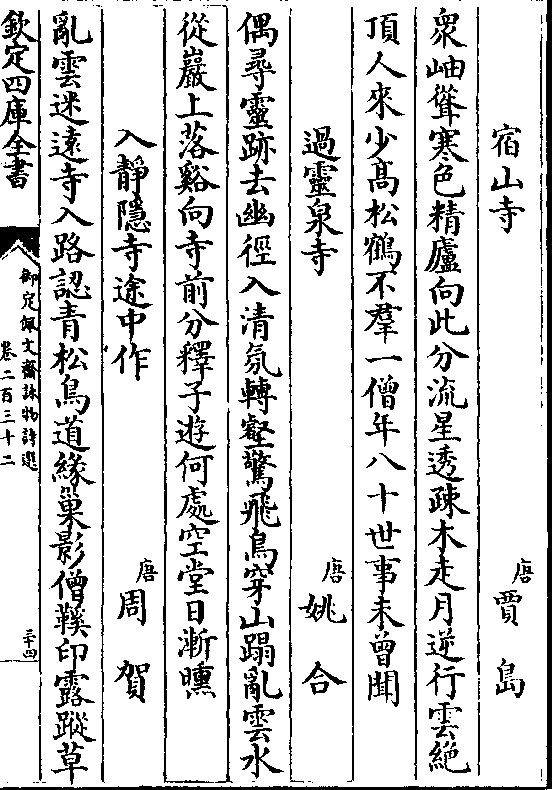 宿山寺
唐賈島
衆岫聳寒色精廬向此分流星透疎木走月逆行雲絶
頂人來少髙松鶴不羣一僧年八十世事未曾聞
過靈泉寺
唐姚合
偶尋靈跡去幽徑入清氛轉壑驚飛鳥穿山蹋亂雲水
從巖上落谿向寺前分釋子遊何處空堂日漸曛
入靜隱寺途中作
唐周賀
亂雲迷遠寺入路認青松鳥道緣巢影僧鞵印露蹤草
欽定四庫全書
御定佩文齋詠物詩選
卷二百三十二
三十四